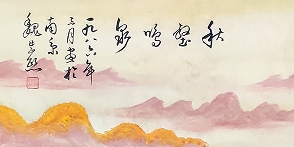 秋壑鸣泉
一九八六年
三月画于
南京
魏紫熙